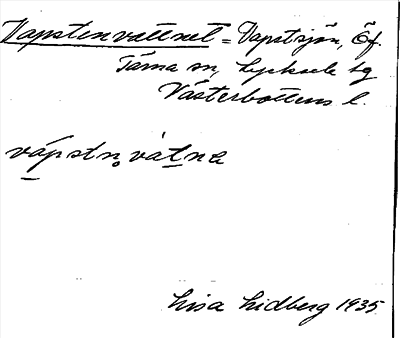 Vapstenvattnet = Vapstsjön, Öf.
Tärna sn, Lycksele lg
Västerbottens l.
vápstn̥ vàtnɐ
Lisa Lidberg 1935